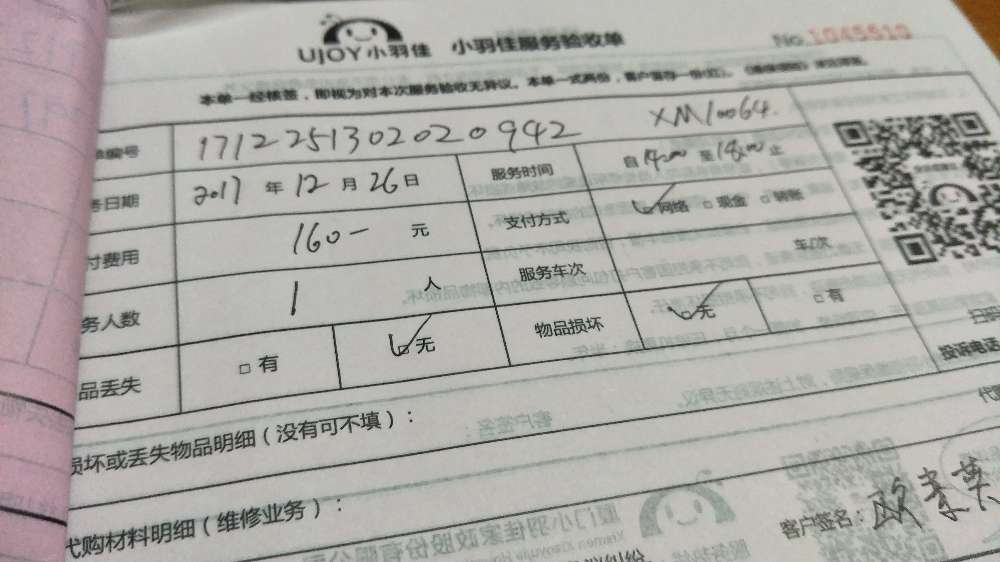 UJOY小羽佳 小羽佳服务验收单 No.1045510
本单一经核签，即视为对本次服务验收无异议。本单一式两份，客户留存一份(红)。
编号 171225130202 0942 XM10064.
务日期 2017 年 12 月 26 日 服务时间 自 14:00 至 18:00 止
付费用 160- 元 支付方式 ☑网络 □现金 □转账
务人数 1 人 服务车次 车/次
品丢失 □有 ☑无 物品损坏 ☑无 □有
投诉电话
损坏或丢失物品明细（没有可不填）：
代购材料明细（维修业务）：
客户签名：